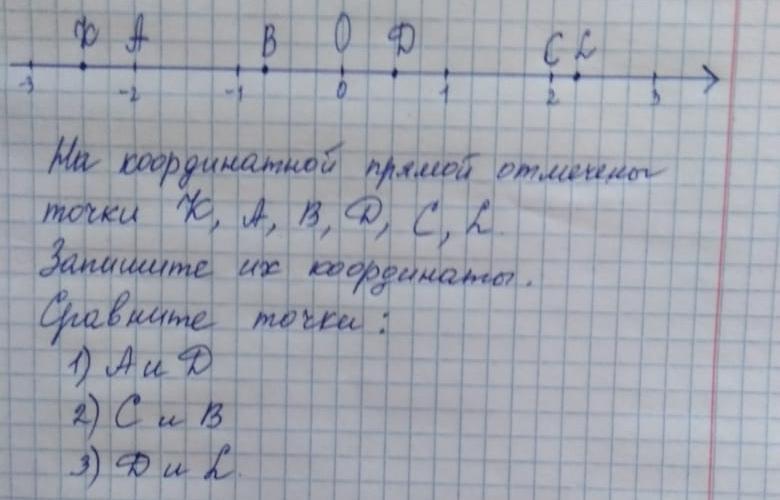 K A B O D C L
-3 -2 -1 0 1 2 3
На координатной прямой отмечены
точки K, A, B, D, C, L.
Запишите их координаты.
Сравните точки:
1) A и D
2) C и B
3) D и L.